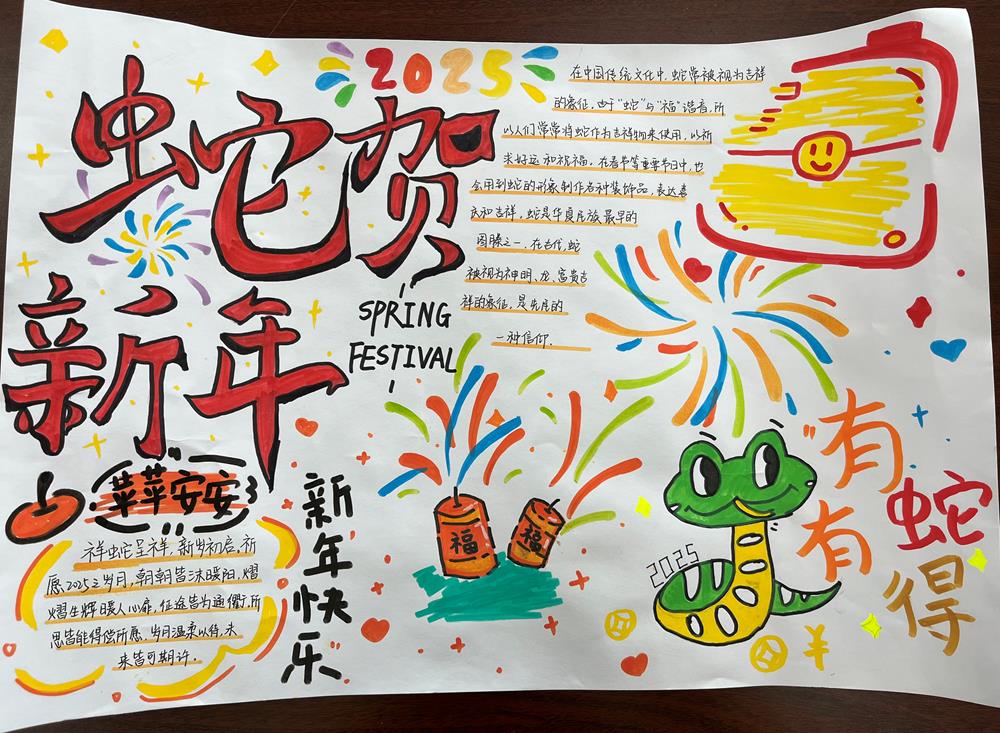 2025
蛇贺
新年
SPRING
FESTIVAL
在中国传统文化中,蛇常被视为吉祥
的象征,由于“蛇”与“福”谐音,所
以人们常常将蛇作为吉祥物来使用,以祈
求好运和祝福。在春节等重要节日中,也
会用到蛇的形象制作各种装饰品,表达喜
庆和吉祥,蛇是华夏民族最早的
图腾之一,在古代,蛇
被视为神明、龙、富贵吉
祥的象征,是先民的
一种信仰.
苹苹安安
祥蛇呈祥,新岁初启,祈
愿2025之岁月,朝朝皆沐暖阳,熠
熠生辉暖人心扉,征途皆为通衢,所
思皆能得偿所愿,岁月温柔以待,未
来皆可期许.
新年快乐
福
福
2025
有
有
蛇
得
¥